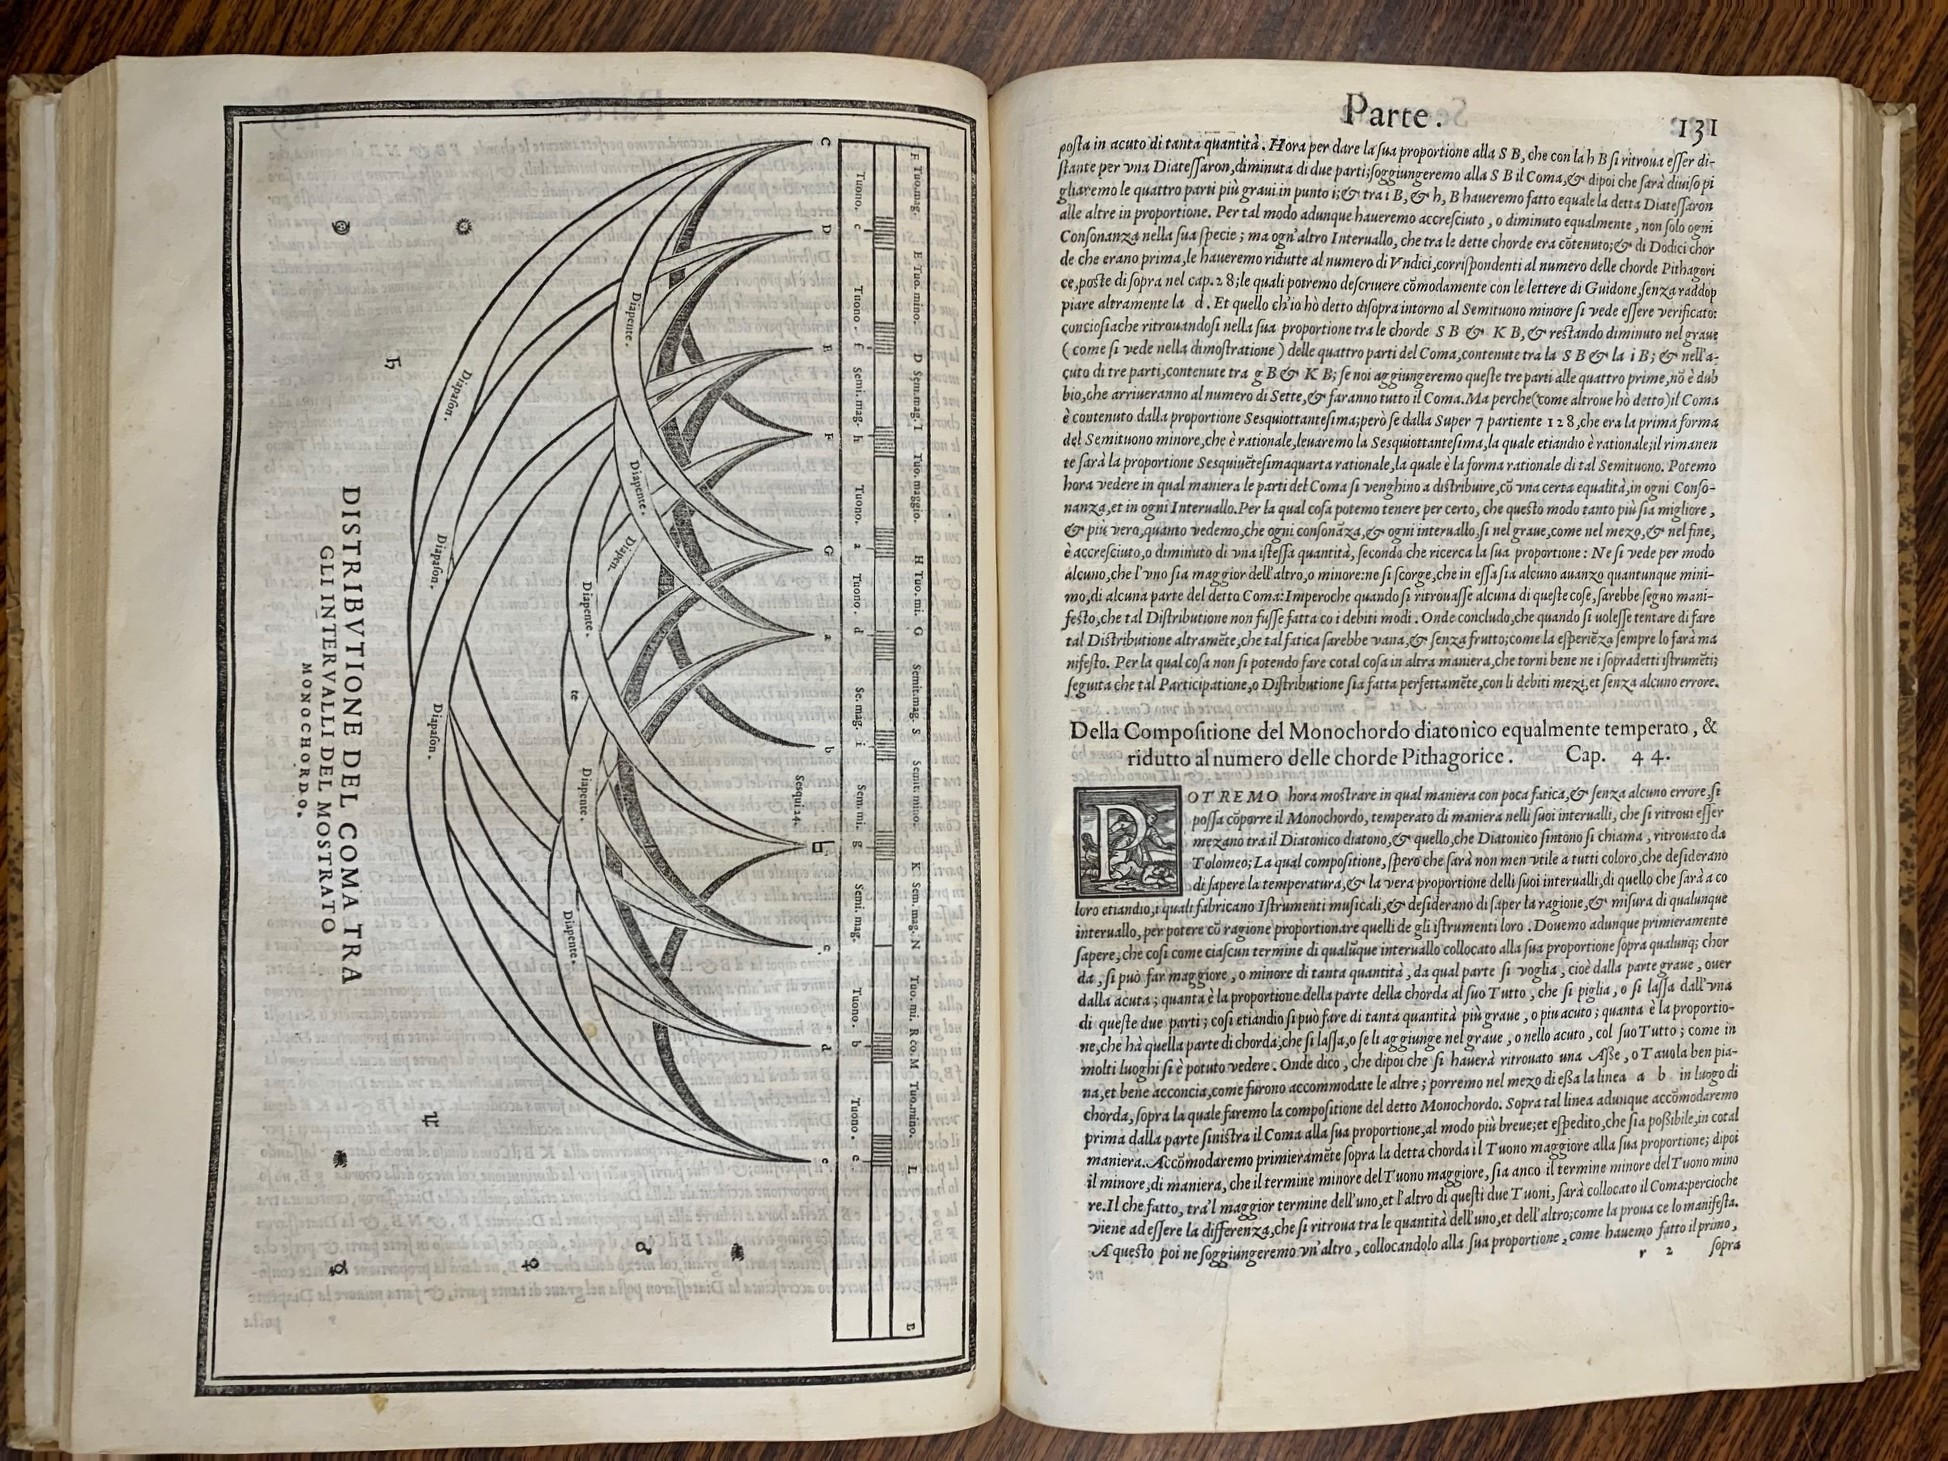 DISTRIBVTIONE DEL COMA TRA
GLI INTERVALLI DEL MOSTRATO
MONOCHORDO.
Diapason.
Diapason.
Diapason.
Diapente.
Diapente.
Diapen.
Diapente.
te
Diapente.
Diapente.
Sesqui 24.
C D E F G a b ♮ c d e
Tuono. c Tuono. f Semi. mag. h Tuono. a Tuono. d Se. mag. i Sem. mi. g Semi. mag. Tuono. b Tuono. e
F Tuo. mag. E Tuo. mino. D Sem. mag. I Tuo. maggio. H Tuo. mi. G Semit. mag. S Semit. mino. K Sem. mag. N Tuo. mi. R co. M Tuo. mino. L B
Parte. 131
posta in acuto di tanta quantità. Hora per dare la sua proportione alla S B, che con la h B si ritroua esser di-
stante per vna Diatessaron, diminuta di due parti; soggiungeremo alla S B il Coma, & dipoi che sarà diuiso pi
gliaremo le quattro parti più graui in punto i; & tra i B, & h, B haueremo fatto equale la detta Diatessaron
alle altre in proportione. Per tal modo adunque haueremo accresciuto, o diminuto equalmente, non solo ogni
Consonanza nella sua specie; ma ogn'altro Interuallo, che tra le dette chorde era cōtenuto; & di Dodici chor
de che erano prima, le haueremo ridutte al numero di Vndici, corrispondenti al numero delle chorde Pithagori
ce, poste di sopra nel cap. 28; le quali potremo descriuere cōmodamente con le lettere di Guidone, senza raddop
piare altramente la d. Et quello ch'io hò detto disopra intorno al Semituono minore si vede essere verificato:
conciosiache ritrouandosi nella sua proportione tra le chorde S B & K B, & restando diminuto nel graue
( come si vede nella dimostratione ) delle quattro parti del Coma, contenute tra la S B & la i B; & nell'a-
cuto di tre parti, contenute tra g B & K B; se noi aggiungeremo queste tre parti alle quattro prime, nō è dub
bio, che arriueranno al numero di Sette, & faranno tutto il Coma. Ma perche (come altroue hò detto) il Coma
è contenuto dalla proportione Sesquiottantesima; però se dalla Super 7 partiente 128, che era la prima forma
del Semituono minore, che è rationale, leuaremo la Sesquiottantesima, la quale etiandio è rationale; il rimanen
te sarà la proportione Sesquiuētesimaquarta rationale, la quale è la forma rationale di tal Semituono. Potemo
hora vedere in qual maniera le parti del Coma si venghino a distribuire, cō vna certa equalità, in ogni Conso-
nanza, et in ogni Interuallo. Per la qual cosa potemo tenere per certo, che questo modo tanto più sia migliore,
& più vero, quanto vedemo, che ogni consonāza, & ogni interuallo, si nel graue, come nel mezo, & nel fine,
è accresciuto, o diminuto di vna istessa quantità, secondo che ricerca la sua proportione: Ne si vede per modo
alcuno, che l'vno sia maggior dell'altro, o minore: ne si scorge, che in essa sia alcuno auanzo quantunque mini-
mo, di alcuna parte del detto Coma: Imperoche quando si ritrouasse alcuna di queste cose, sarebbe segno mani-
festo, che tal Distributione non fusse fatta co i debiti modi. Onde concludo, che quando si uolesse tentare di fare
tal Distributione altramēte, che tal fatica sarebbe vana, & senza frutto; come la esperiēza sempre lo farà ma
nifesto. Per la qual cosa non si potendo fare cotal cosa in altra maniera, che torni bene ne i sopradetti istrumēti;
seguita che tal Participatione, o Distributione sia fatta perfettamēte, con li debiti mezi, et senza alcuno errore.
Della Compositione del Monochordo diatonico equalmente temperato, &
ridutto al numero delle chorde Pithagorice. Cap. 44.
POTREMO hora mostrare in qual maniera con poca fatica, & senza alcuno errore, si
possa cōporre il Monochordo, temperato di maniera nelli suoi interualli, che si ritroui esser
mezano tra il Diatonico diatono, & quello, che Diatonico sintono si chiama, ritrouato da
Tolomeo; La qual compositione, spero che sarà non men vtile a tutti coloro, che desiderano
di sapere la temperatura, & la vera proportione delli suoi interualli; di quello che sarà a co
loro etiandio, i quali fabricano Istrumenti musicali, & desiderano di saper la ragione, & misura di qualunque
interuallo, per potere cō ragione proportionare quelli de gli istrumenti loro. Douemo adunque primieramente
sapere, che cosi come ciascun termine di qualūque interuallo collocato alla sua proportione sopra qualunq; chor
da, si può far maggiore, o minore di tanta quantità, da qual parte si voglia, cioè dalla parte graue, ouer
dalla acuta; quanta è la proportione della parte della chorda al suo Tutto, che si piglia, o si lassa dall'vna
di queste due parti; cosi etiandio si può fare di tanta quantità più graue, o piu acuto; quanta è la proportio-
ne, che hà quella parte di chorda, che si lassa, o se li aggiunge nel graue, o nello acuto, col suo Tutto; come in
molti luoghi si è potuto vedere. Onde dico, che dipoi che si hauerà ritrouato una Asse, o Tauola ben pia-
na, et bene acconcia, come furono accommodate le altre; porremo nel mezo di essa la linea a b in luogo di
chorda, sopra la quale faremo la compositione del detto Monochordo. Sopra tal linea adunque accōmodaremo
prima dalla parte sinistra il Coma alla sua proportione, al modo più breue; et espedito, che sia possibile, in cotal
maniera. Accōmodaremo primieramēte sopra la detta chorda il Tuono maggiore alla sua proportione; dipoi
il minore, di maniera, che il termine minore del Tuono maggiore, sia anco il termine minore del Tuono mino
re. Il che fatto, tra'l maggior termine dell'uno, et l'altro di questi due Tuoni, sarà collocato il Coma: percioche
viene ad essere la differenza, che si ritroua tra le quantità dell'uno, et dell'altro; come la proua ce lo manifesta.
A questo poi ne soggiungeremo vn'altro, collocandolo alla sua proportione, come hauemo fatto il primo,
r 2 sopra